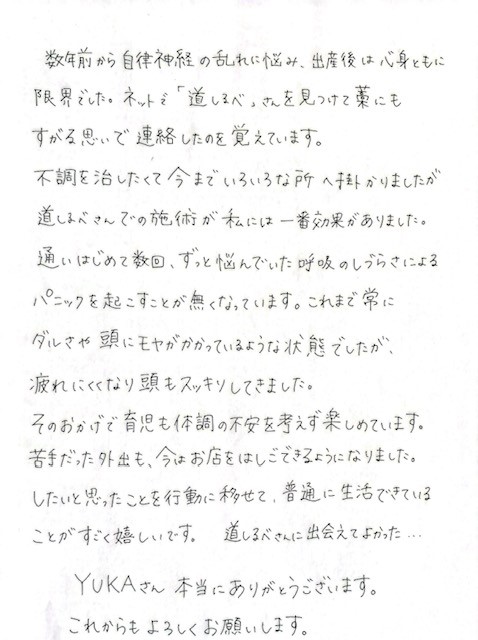 数年前から自律神経の乱れに悩み、出産後は心身ともに
限界でした。ネットで「道しるべ」さんを見つけて藁にも
すがる思いで連絡したのを覚えています。
不調を治したくて今までいろいろな所へ掛かりましたが
道しるべさんでの施術が私には一番効果がありました。
通いはじめて数回、ずっと悩んでいた呼吸のしづらさによる
パニックを起こすことが無くなっています。これまで常に
ダルさや頭にモヤがかかっているような状態でしたが、
疲れにくくなり頭もスッキリしてきました。
そのおかげで育児も体調の不安を考えず楽しめています。
苦手だった外出も、今はお店をはしごできるようになりました。
したいと思ったことを行動に移せて、普通に生活できている
ことがすごく嬉しいです。 道しるべさんに出会えてよかった…
YUKAさん 本当にありがとうございます。
これからもよろしくお願いします。